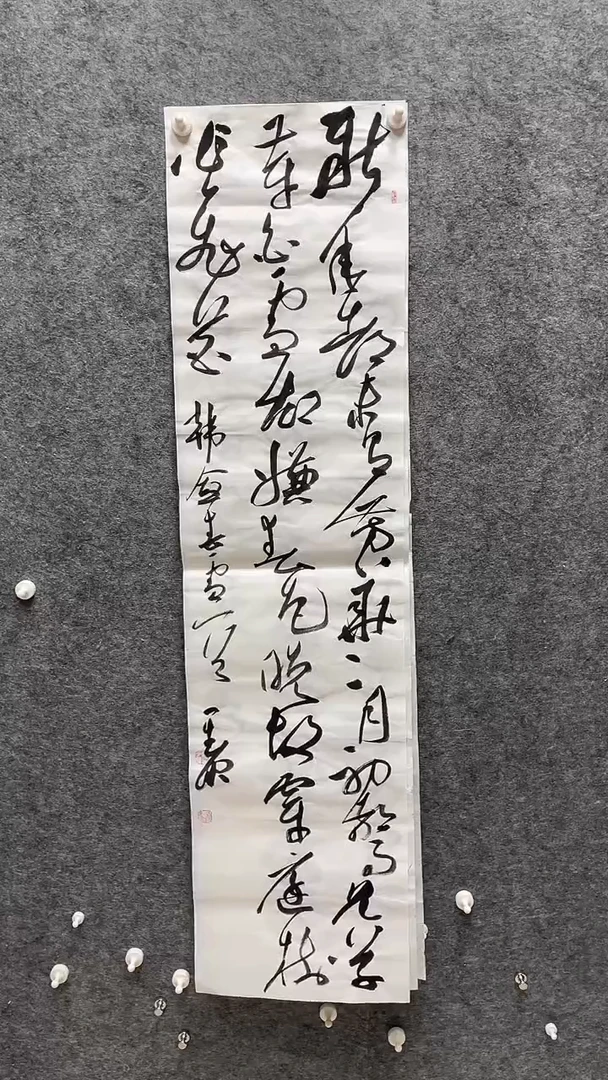 新年都未有芳華二月初驚見草
芽白雪却嫌春色晚故穿庭樹
作飛花 韓愈春雪一首